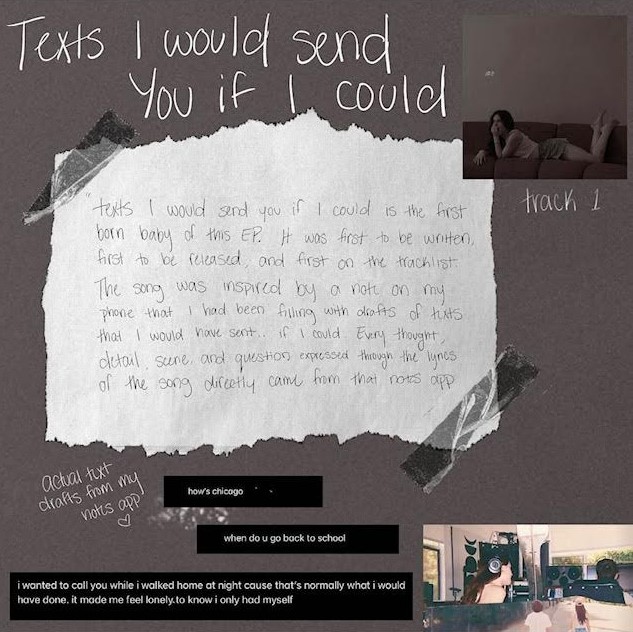 Texts I would send
You if I could
track 1
"texts I would send you if I could is the first
born baby of this EP. It was first to be written,
first to be released, and first on the tracklist.
The song was inspired by a note on my
phone that I had been filling with drafts of texts
that I would have sent.. if I could Every thought,
detail, scene, and question expressed through the lyrics
of the song directly came from that notes app
actual text
drafts from my
notes app
how's chicago
when do u go back to school
i wanted to call you while i walked home at night cause that's normally what i would
have done. it made me feel lonely.to know i only had myself